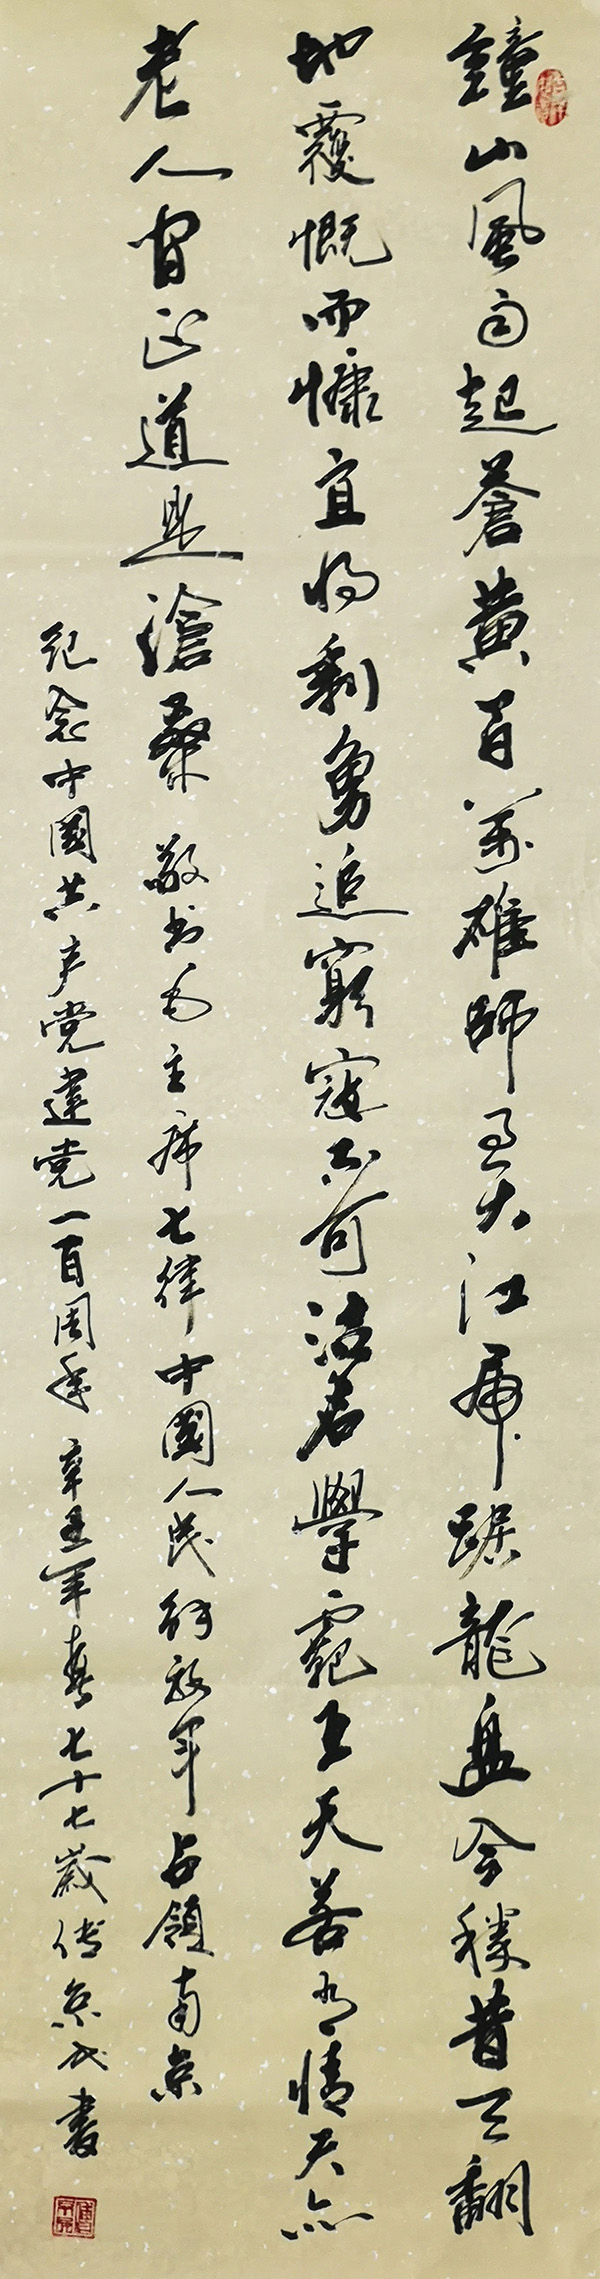 鐘山風雨起蒼黄百萬雄師過大江虎踞龍盤今勝昔天翻
地覆慨而慷宜將剩勇追窮寇不可沽名學霸王天若有情天亦
老人間正道是滄桑 敬书毛主席七律中國人民解放军占領南京
纪念中國共产党建党一百周年 辛丑年春七十七歲傅京成書